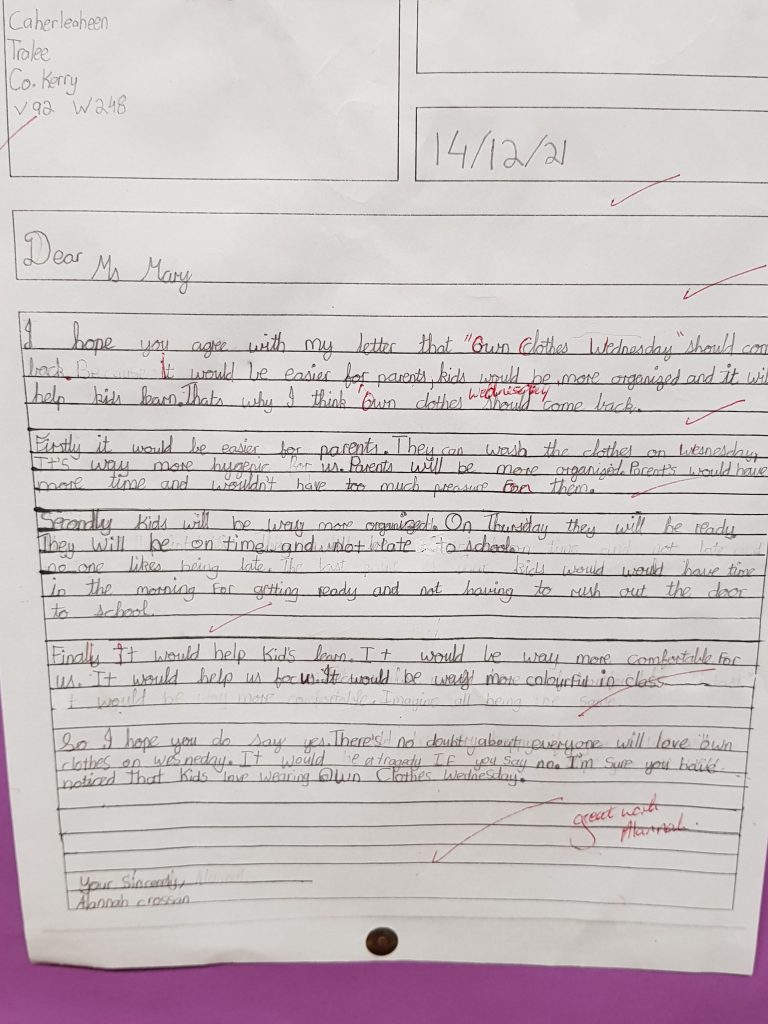 Caherleaheen
Tralee
Co. Kerry
V92 W248
14/12/21
Dear Ms Mary
I hope you agree with my letter that "Own Clothes Wednesday" should com
back. Because It would be easier for parents, kids would be more organized and it wil
help kids learn. Thats why I think Own clothes Wednesday should come back.
Firstly it would be easier for parents. They can wash the clothes on Wednesday,
It's way more hygenic for us. Parents will be more organised. Parent's would have
more time and wouldn't have too much preasure For them.
Secondly kids will be way more organized. On Thursday they will be ready
They will be on time and not late to school
no one likes being late. kids would would have time
in the morning For getting ready and not having to rush out the door
to school.
Finally It would help Kid's learn. It would be way more comfortable For
us. It would help us focus. It would be way more colourful in class
t would be way more comfortable. Imagine all being the same
So I hope you do say yes. There's no doubt about everyone will love own
clothes on wesneday. It would be a tragedy IF you say no. I'm sure you have
noticed that Kids love wearing Own Clothes Wednesday.
great work
Alannah
Your Sincerely,
Alannah crossan